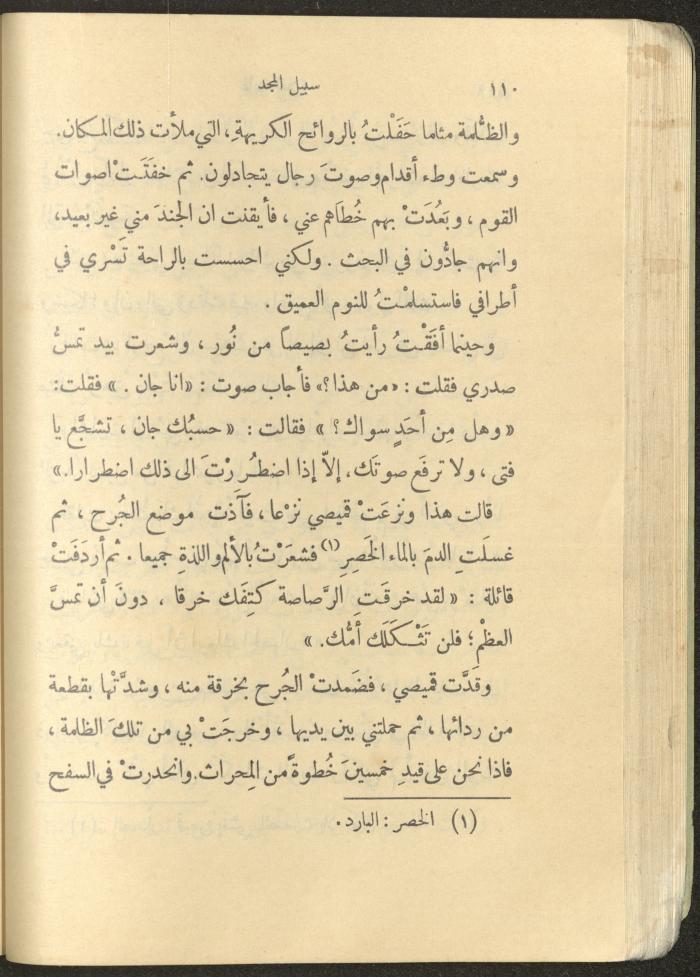 ١١٠ سبيل المجد
والظُّلمة مثلما حَفَلْتُ بالروائح الكريهةِ، التي ملأت ذلك المكان.
وسمعت وطء أقدام وصوتَ رجال يتجادلون. ثم خفَتَتْ اصوات
القوم ، وبَعُدَتْ بهم خُطاهم عني ، فأيقنت ان الجندَ مني غير بعيد،
وانهم جادُّون في البحث . ولكني احسست بالراحة تَسْري في
أطرافي فاستسلمْتُ للنوم العميق .
وحينما أفَقْتُ رأيتُ بصيصاً من نُور ، وشعرت بيد تمسُّ
صدري فقلت : «من هذا؟» فأجاب صوت : «انا جان . » فقلت:
« وهل مِن أحَدٍ سواك؟ » فقالت : « حسبُك جان ، تشجَّع يا
فتى ، ولا ترفَع صوتَك، إلاّ إذا اضطُررْتَ الى ذلك اضطرارا.»
قالت هذا ونزعَتْ قميصي نزْعا ، فآذت موضع الجُرح ، ثم
غسلَتِ الدمَ بالماء الخَصِرِ (١) فشعَرْتُ بالألم واللذةِ جميعا . ثم أردَفَتْ
قائلة : « لقد خرقَتِ الرَّصاصة كتِفَك خرقا ، دونَ أن تمسَّ
العظْم؛ فلن تَثْكَلَك أمُّك. »
وقَدَّت قميصي ، فضَمدتْ الجُرح بخرقة منه ، وشدَّتْها بقطعة
من ردائها ، ثم حملتني بين يديها ، وخرجَتْ بي من تلكَ الظلمة ،
فاذا نحن على قيدِ خمسينَ خُطوةً من المِحراث. وانحدرتْ في السفح
(١) الخصر : البارد .